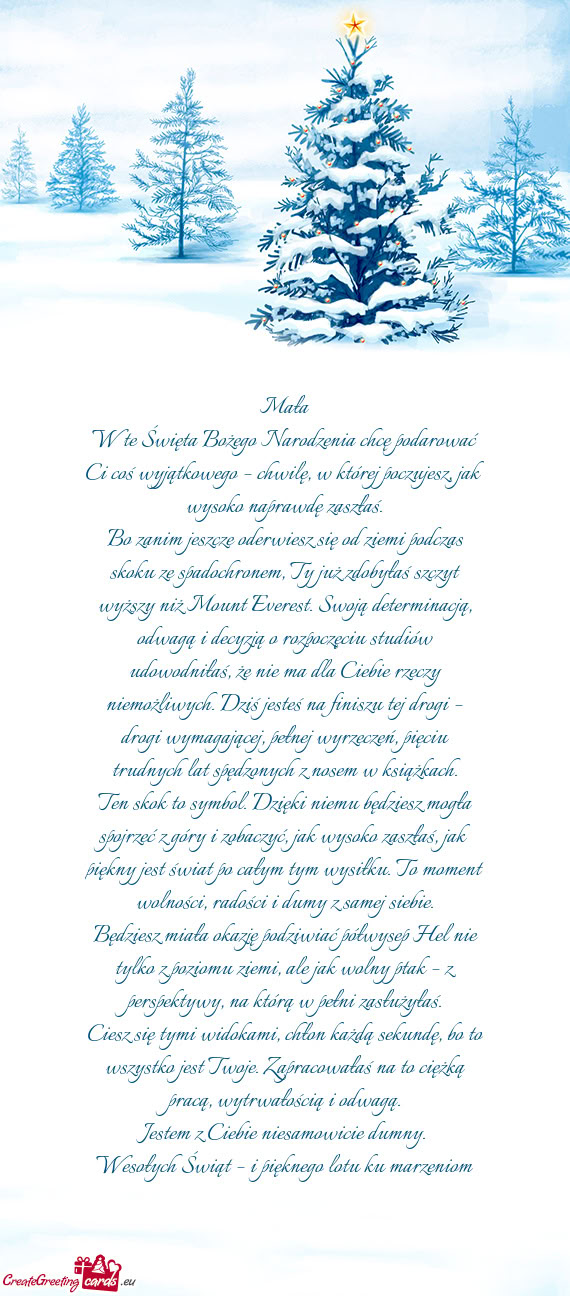 Mała
W te Święta Bożego Narodzenia chcę podarować
Ci coś wyjątkowego – chwilę, w której poczujesz, jak
wysoko naprawdę zaszłaś.
Bo zanim jeszcze oderwiesz się od ziemi podczas
skoku ze spadochronem, Ty już zdobyłaś szczyt
wyższy niż Mount Everest. Swoją determinacją,
odwagą i decyzją o rozpoczęciu studiów
udowodniłaś, że nie ma dla Ciebie rzeczy
niemożliwych. Dziś jesteś na finiszu tej drogi –
drogi wymagającej, pełnej wyrzeczeń, pięciu
trudnych lat spędzonych z nosem w książkach.
Ten skok to symbol. Dzięki niemu będziesz mogła
spojrzeć z góry i zobaczyć, jak wysoko zaszłaś, jak
piękny jest świat po całym tym wysiłku. To moment
wolności, radości i dumy z samej siebie.
Będziesz miała okazję podziwiać półwysep Hel nie
tylko z poziomu ziemi, ale jak wolny ptak – z
perspektywy, na którą w pełni zasłużyłaś.
Ciesz się tymi widokami, chłon każdą sekundę, bo to
wszystko jest Twoje. Zapracowałaś na to ciężką
pracą, wytrwałością i odwagą.
Jestem z Ciebie niesamowicie dumny.
Wesołych Świąt – i pięknego lotu ku marzeniom
CreateGreeting cards .eu